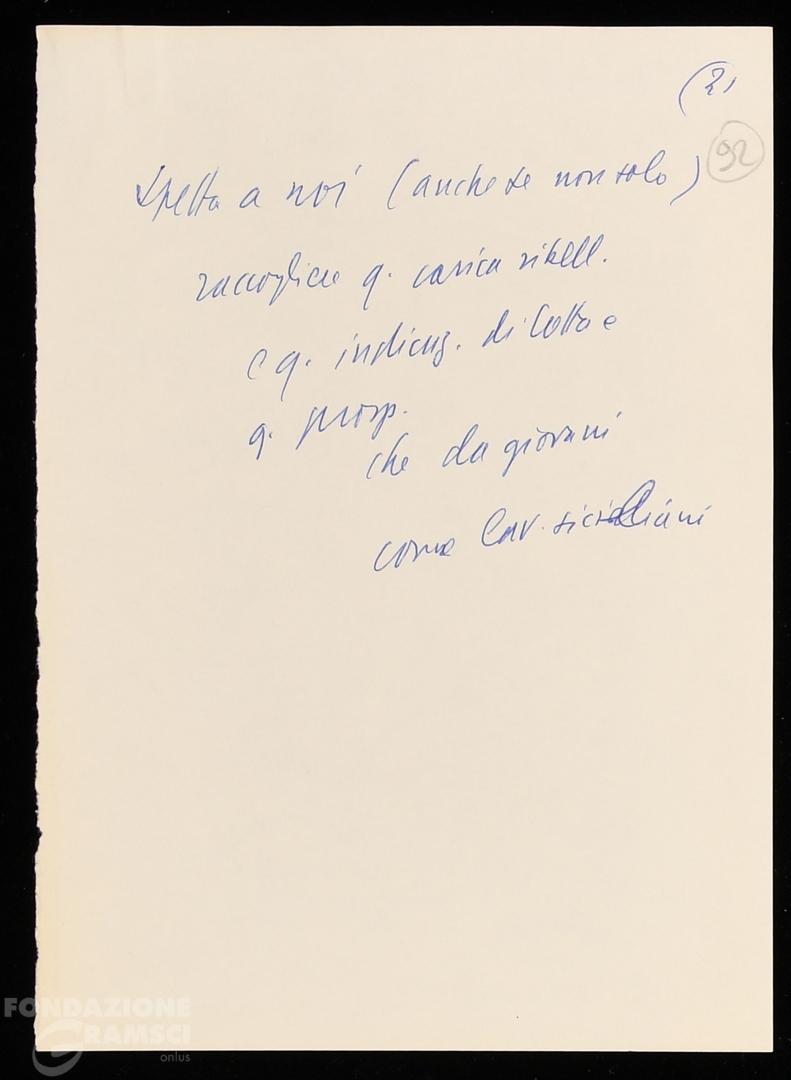 (2)
92
Spetta a noi (anche se non solo)
raccogliere q. carica ribell.
e q. indicaz. di lotta e
q. prosp.
che da giovani
come lav. siciliani
FONDAZIONE
GRAMSCI
onlus